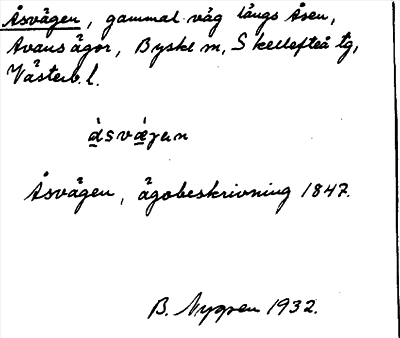 Åsvägen, gammal väg längs Åsen,
Avans ägor, Byske sn, Skellefteå tg,
Västerb. l.
åsvægen
Åsvägen, ägobeskrivning 1847.
B. Nygren 1932.